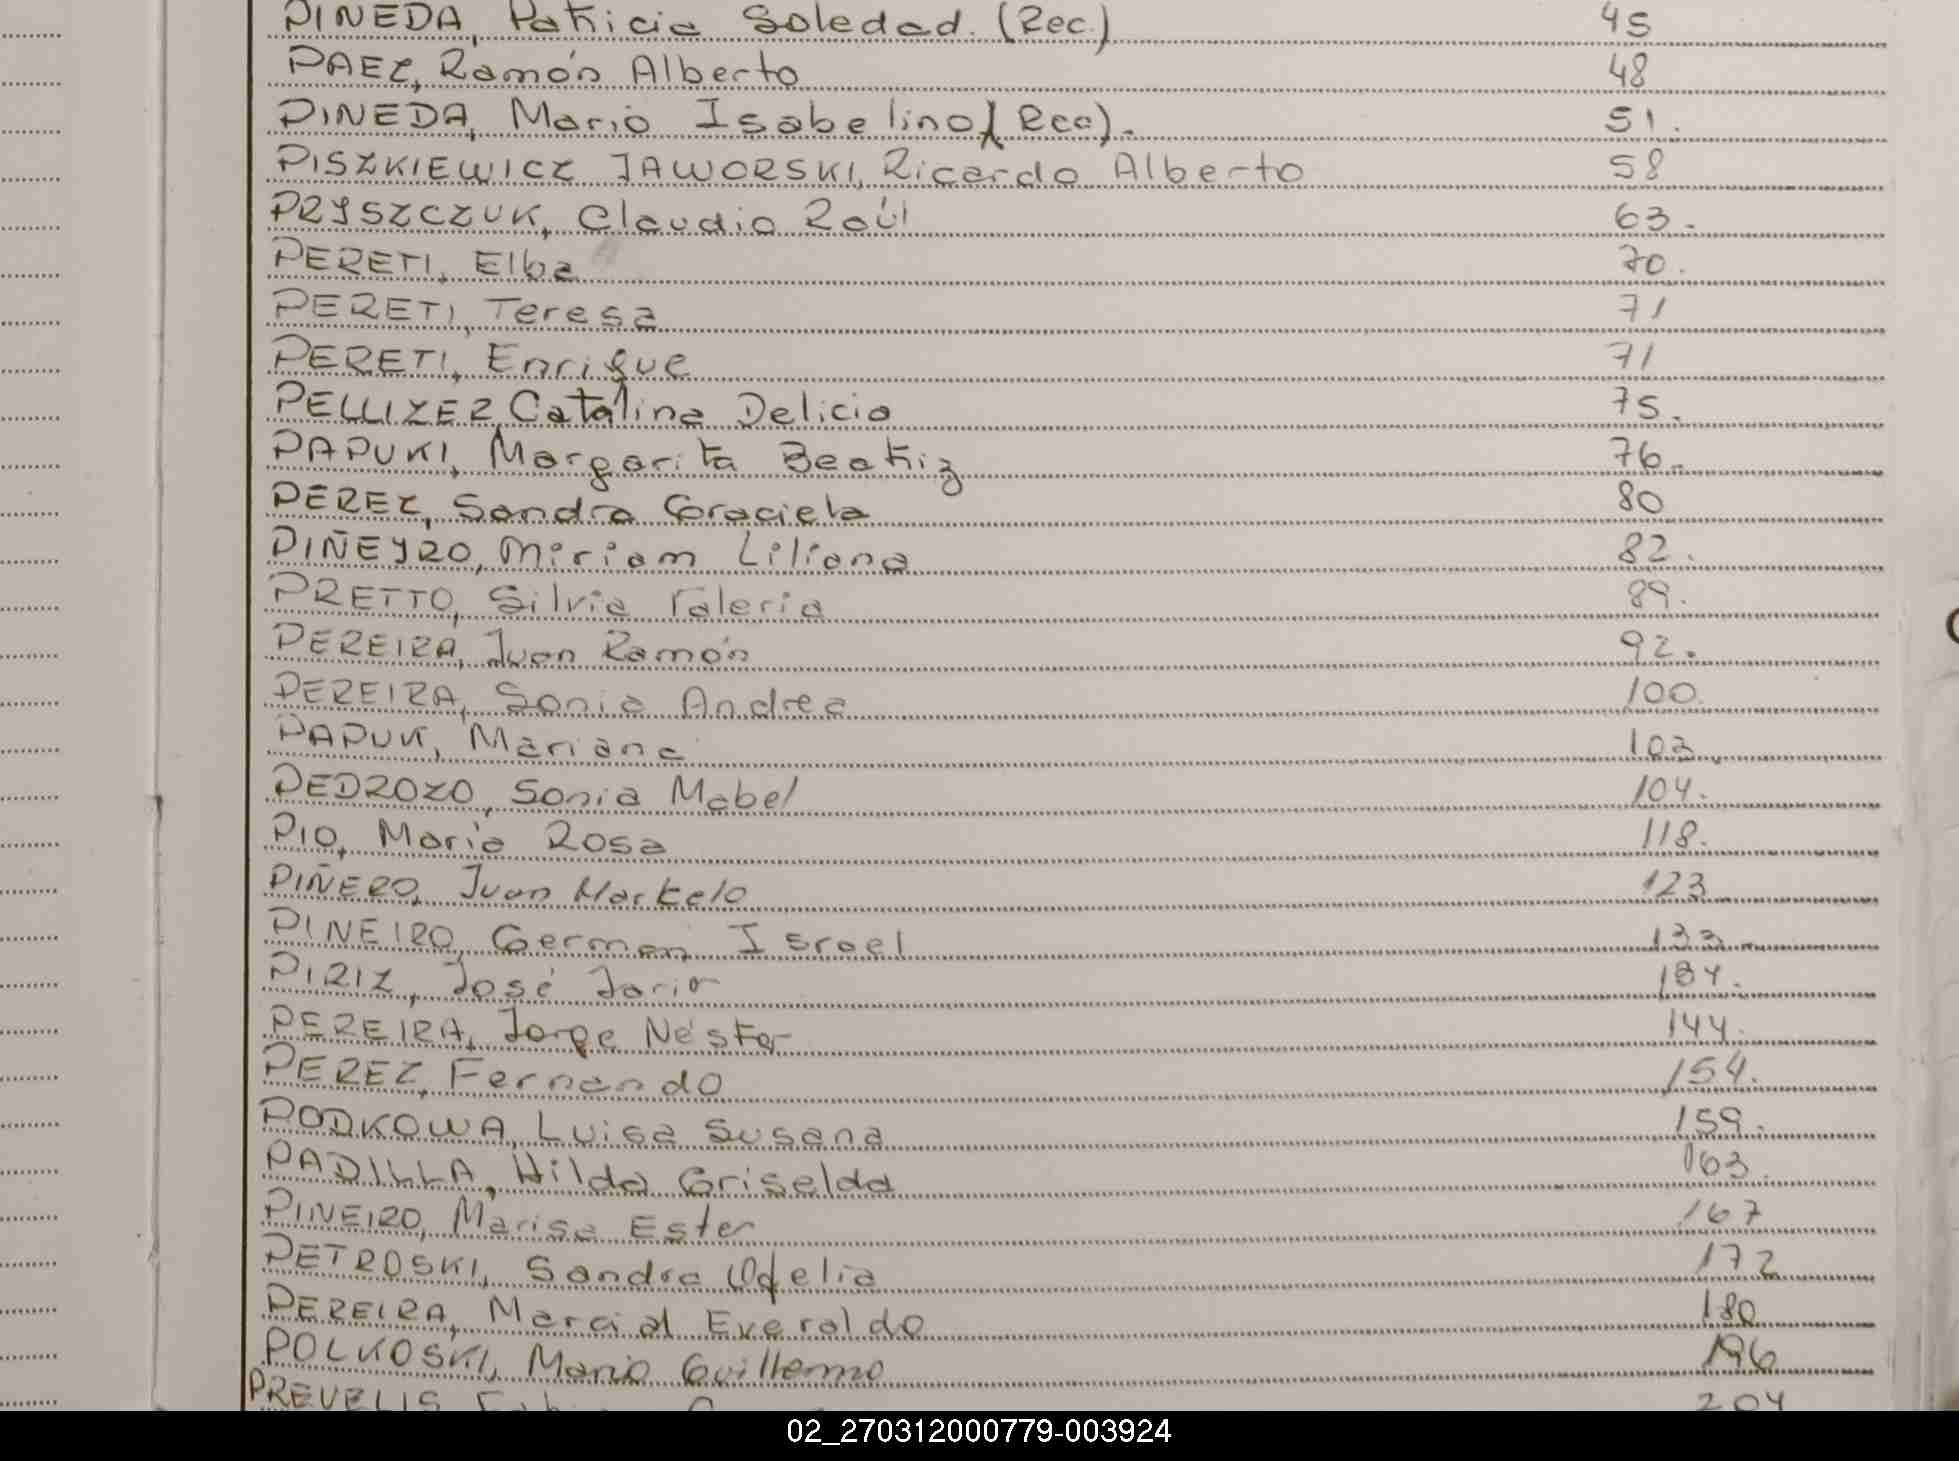 PINEDA, Patricia Soledad. (Rec.) 45
PAEZ, Ramón Alberto 48
PINEDA, Mario Isabelino (Rec). 51.
PISZKIEWICZ JAWORSKI, Ricardo Alberto 58
PRYSZCZUK, Claudio Raúl 63.
PERETI, Elba 70.
PERETI, Teresa 71
PERETI, Enrique 71
PELLIZER, Catalina Delicia 75.
PAPUKI, Margarita Beatriz 76.
PEREZ, Sandra Graciela 80
PIÑEYRO, Miriam Liliana 82.
PRETTO, Silvia Valeria 89.
PEREIRA, Juan Ramón 92.
PEREIRA, Sonia Andrea 100.
PAPUK, Mariana 103.
PEDROZO, Sonia Mabel 104.
PIO, María Rosa 118.
PIÑERO, Juan Marcelo 123
PINEIRO, German Israel 133.
PIRIZ, José 134.
PEREIRA, Jorge Néstor 144.
PEREZ, Fernando 154.
PODKOWA, Luisa Susana 159.
PADILLA, Hilda Griselda 163.
PINEIRO, Marisa Ester 167
PETROSKI, Sandra Ofelia 172
PEREIRA, Marcial Everaldo 180
POLKOSKI, Mario Guillermo 196
PREVELIS 204
02_270312000779-003924